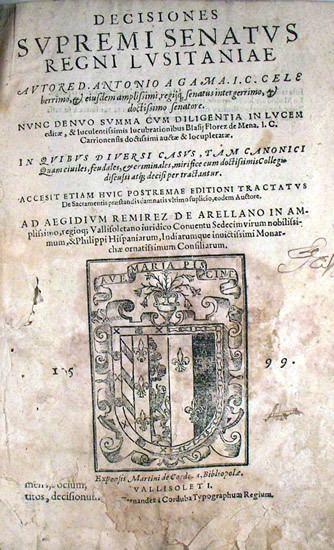 DECISIONES
SVPREMI SENATVS
REGNI LVSITANIAE
AVTORE D. ANTONIO A GAMA. I. C. CELE
berrimo, & eiusdem amplissimi, regijq́, senatus integerrimo, &
doctissimo senatore.
NVNC DENVO SVMMA CVM DILIGENTIA IN LVCEM
editæ, & luculentissimis lucubrationibus Blasij Florez de Mena, I. C.
Carrionensis doctissimi auctæ & locupletatæ.
IN QVIBVS DIVERSI CASVS, TAM CANONICI
Quam ciuiles, feudales, & criminales, mirifice cum doctissimis Collegis
discussi atq; decisi pertractantur.
ACCESSIT ETIAM HVIC POSTREMAE EDITIONI TRACTATVS
De Sacramentis præstandis damnatis vltimo suplicio, eodem Auctore.
AD AEGIDIVM REMIREZ DE ARELLANO IN AM-
plissimo, regioq; Vallisoletano iuridico Conuentu Sedecim virum nobilissi-
mum, & Philippi Hispaniarum, Indiarumque inuictissimi Monar-
chæ ornatissimum Consiliarum.
MARIA
15 99.
Expensis Martini de Corde Bibliopolæ.
VALLISOLETI.
Fernandez à Corduba Typographum Regium.
ocium,
titos, decisionum